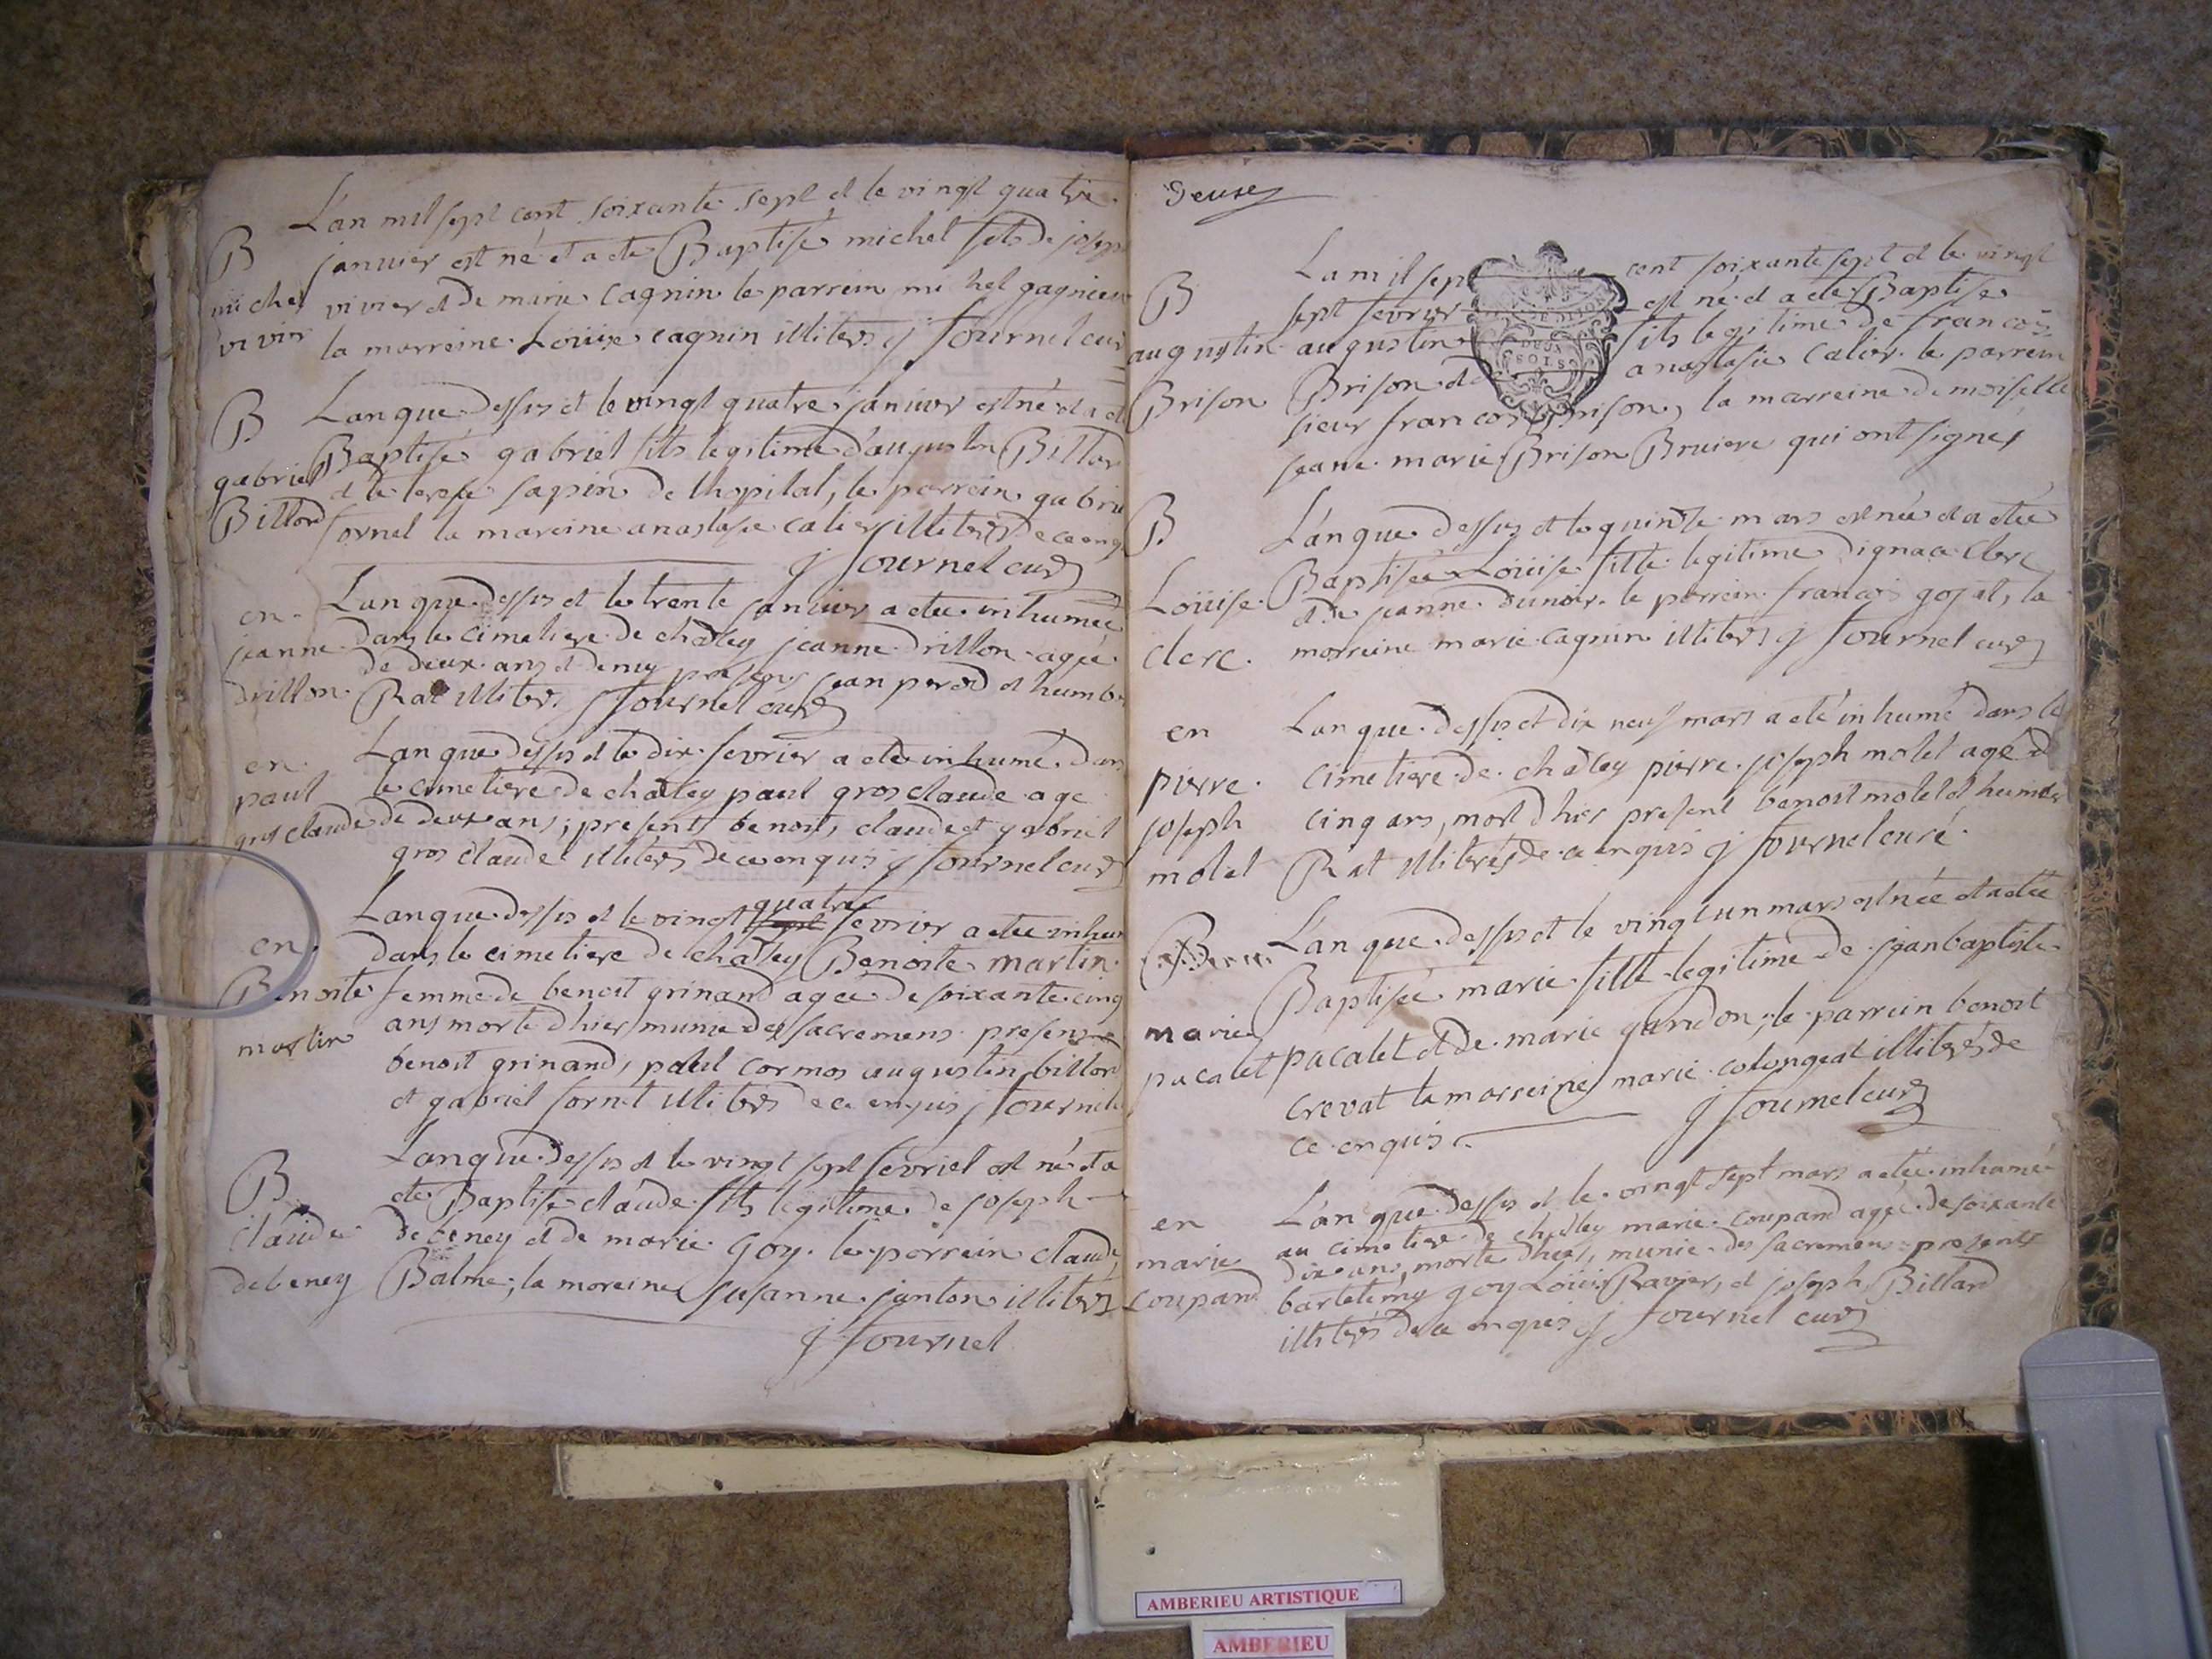 L'an mil sept cent soixante sept et le vingt quatre
B
janvier est né et a eté Baptisé michel fils de joseph
michel
vivier et de marie cagnin le parrein michel gagnieu
vivier
la marreine Loüise cagnin illiters j fournel curé
B
Lan que dessus et le vingt quatre janvier est né et a eté
Baptisé gabriel fils legitime d'augustin Billard
gabriel
et de terese sapin de lhopital, le parrein gabriel
Billard
fornel la mareine anastasie catier illiters de ce enq
j fournel curé
en
Lan que dessus et le trente janvier a etee inhumée
jeanne
dans le cimetiere de chatey jeanne drillon agée
drillon
de deux ans et demy presens jean perod et humb
Rat illiters j fournel curé
en
Lan que dessus et le dix fevrier a eté inhumé dans
paul
le cimetiere de chatey paul gros claude age
gros claude
de deux ans, presents benoit, claude et gabriel
gros claude illiters de ce enquis j fournel curé
quatre
Lan que dessus et le vingt sept fevrier a etee inhu
en
dans le cimetiere de chatey Benoite martin
Benoite
femme de benoit grinand agée de soixante cinq
martin
ans morte dhier munie des sacremens presens
benoit grinand, paul cormos augustin billard
et gabriel fornel illiters de ce enquis j fournel c
Lan que dessus et le vingt sept fevriel est né et a
B
eté Baptisé claude fils legitime de joseph
claude
debeney et de marie Goy. le parrein claude
debeney
Balme, la moreine susanne janton illiters
j fournel
Deuxe
B
Lan mil sept cent soixante sept et le vingt
sept fevrier est né et a eté Baptisé
augustin
augustin fils legitime de francois
DEUX
SOLS
Brison
Brison et de anastasie catier. le parrein
sieur francois Brison, la marreine demoiselle
jeane marie Brison Bruiere qui ont signés
B
L'an que dessus et le quinze mars est née et a etée
Baptisée Loüise fille legitime dignace Clerc
Loüise
et de jeanne dunoir. le parrein francois gojat, la
clerc.
marreine marie cagnin illiters j fournel curé
en
Lan que dessus et dix neuf mars a eté inhumé dans le
pierre
cimetiere de chatey pierre joseph molet agé de
joseph
cinq ans, mort dhier present benoit molet et humber
molet
Rat illiterés de ce enquis j fournel curé
B
L'an que dessus et le vingt un mars est née et a etée
Baptisée marie fille legitime de jean baptiste
marie
pacalet
pacalet et de marie gandon; le parrein benoit
crevat la marreine marie colongeat illiterés de
ce enquis. j fournel curé
L'an que dessus et le vingt sept mars a etée inhumé
en
au cimetiere de chatley marie coupand agée de soixante
marie
dix ans, morte dhier, munie des sacremens presents
coupand
bartelemy goy Loüis Ravier, et joseph Billard
illiterés de ce enquis j fournel curé
AMBERIEU ARTISTIQUE
AMBERIEU